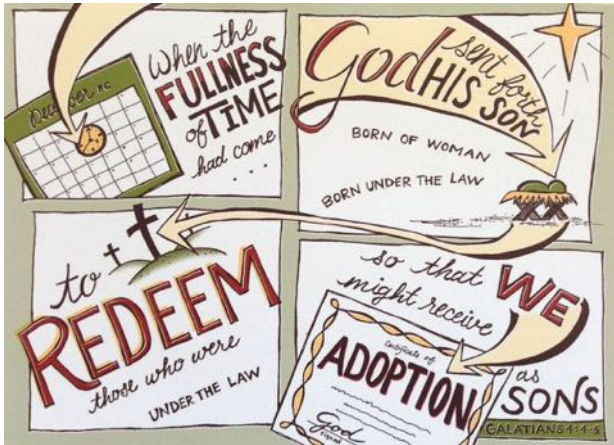 December BC
When the
FULLNESS
of TIME
had come
...
God sent forth
HIS SON
BORN OF WOMAN
BORN UNDER THE LAW
to
REDEEM
those who were
UNDER THE LAW
so that WE
might receive
Certificate of
ADOPTION
God
as
SONS
GALATIANS 4:4-5